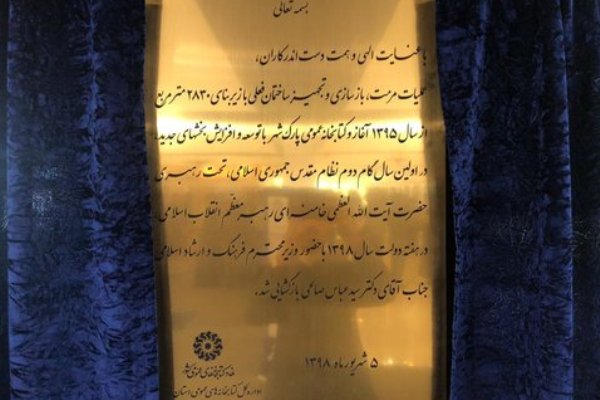 بسمه تعالی
با عنایت الهی و همت دست‌اندرکاران،
عملیات مرمت، بازسازی و تجهیز ساختمان فعلی با زیربنای ۲۸۳۰ مترمربع
از سال ۱۳۹۵ آغاز و کتابخانه عمومی پارک شهر با توسعه و افزایش بخشهای جدید
در اولین سال گام دوم نظام مقدس جمهوری اسلامی، تحت رهبری
حضرت آیت الله العظمی خامنه‌ای رهبر معظم انقلاب اسلامی
در هفته دولت سال ۱۳۹۸ با حضور وزیر محترم فرهنگ و ارشاد اسلامی
جناب آقای دکتر سید عباس صالحی بازگشایی شد.
۵ شهریور ماه ۱۳۹۸
نهاد کتابخانه‌های عمومی کشور
اداره کل کتابخانه های عمومی استان